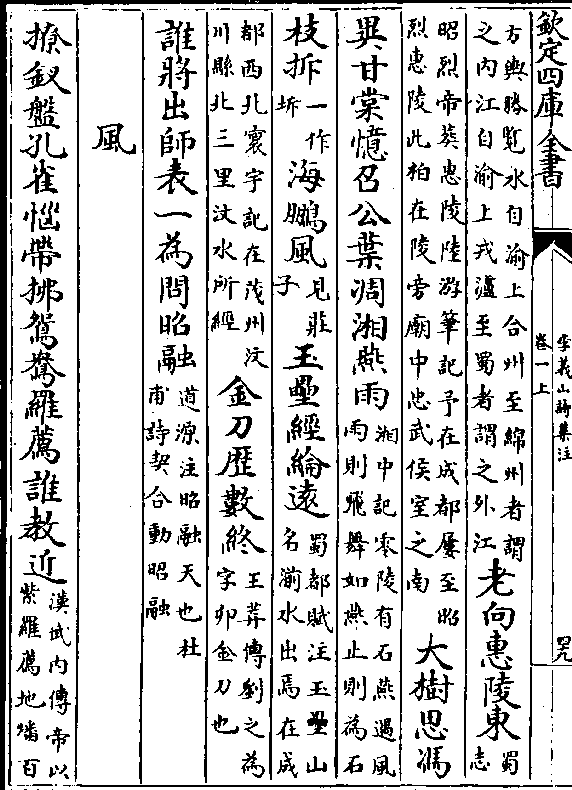 欽定四庫全書
李義山詩集注
卷一上
四九
方輿勝覽水自渝上合州至綿州者謂之内江自渝上戎瀘至蜀者謂之外江老向惠陵東蜀志
昭烈帝葬惠陵陸游筆記予在成都屢至昭烈惠陵此柏在陵旁廟中忠武侯室之南大樹思馮
異甘棠憶召公葉凋湘燕雨湘中記零陵有石燕遇風雨則飛舞如燕止則為石
枝拆一作坼海鵬風見莊子玉壘經綸遠蜀都賦注玉壘山名湔水出焉在成
都西北寰宇記在茂州汶川縣北三里汶水所經金刀歷數終王莽傳劉之為字卯金刀也
誰將出師表一為問昭融道源注昭融天也杜甫詩契合動昭融
風
撩釵盤孔雀惱帶拂鴛鴦羅薦誰教近漢武内傳帝以紫羅薦地燔百